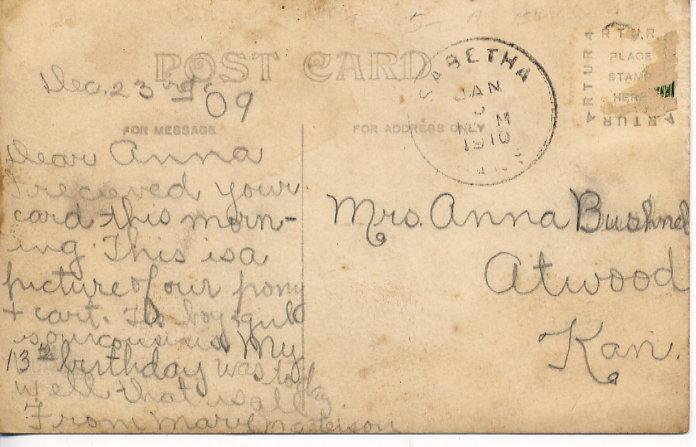 POST CARD
SABETHA
JAN
M
1910
ARTURA
ARTURA
PLACE
STAMP
HERE
ARTURA
ARTURA
Dec. 23rd 09
FOR MESSAGE
FOR ADDRESS ONLY
Dear Anna
I recieved your
card this morn-
ing. This is a
picture of our pony
+ cart. The boy + girl
is our cousins. My
13th birthday was today
well that is all
From Mary
Mrs. Anna Bushnel
Atwood
Kan.